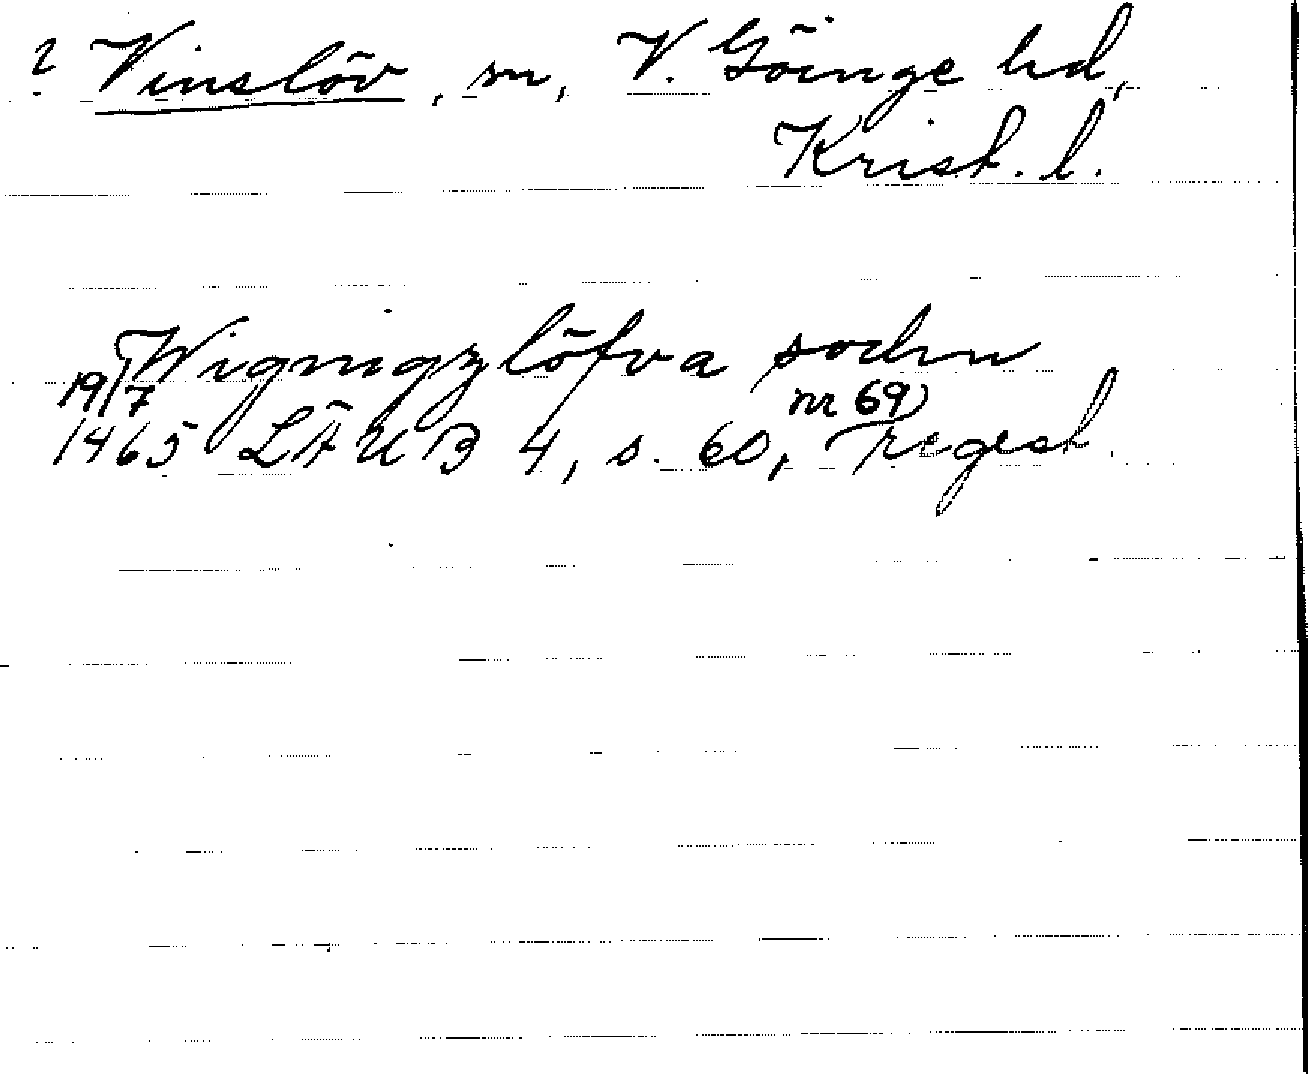 ? Vinslöv, sn, V. Göinge hd,
Krist. l.
Wignigzlöfva sochn
19/7 nr 69)
1465 LÄUB 4, s. 60, regest.